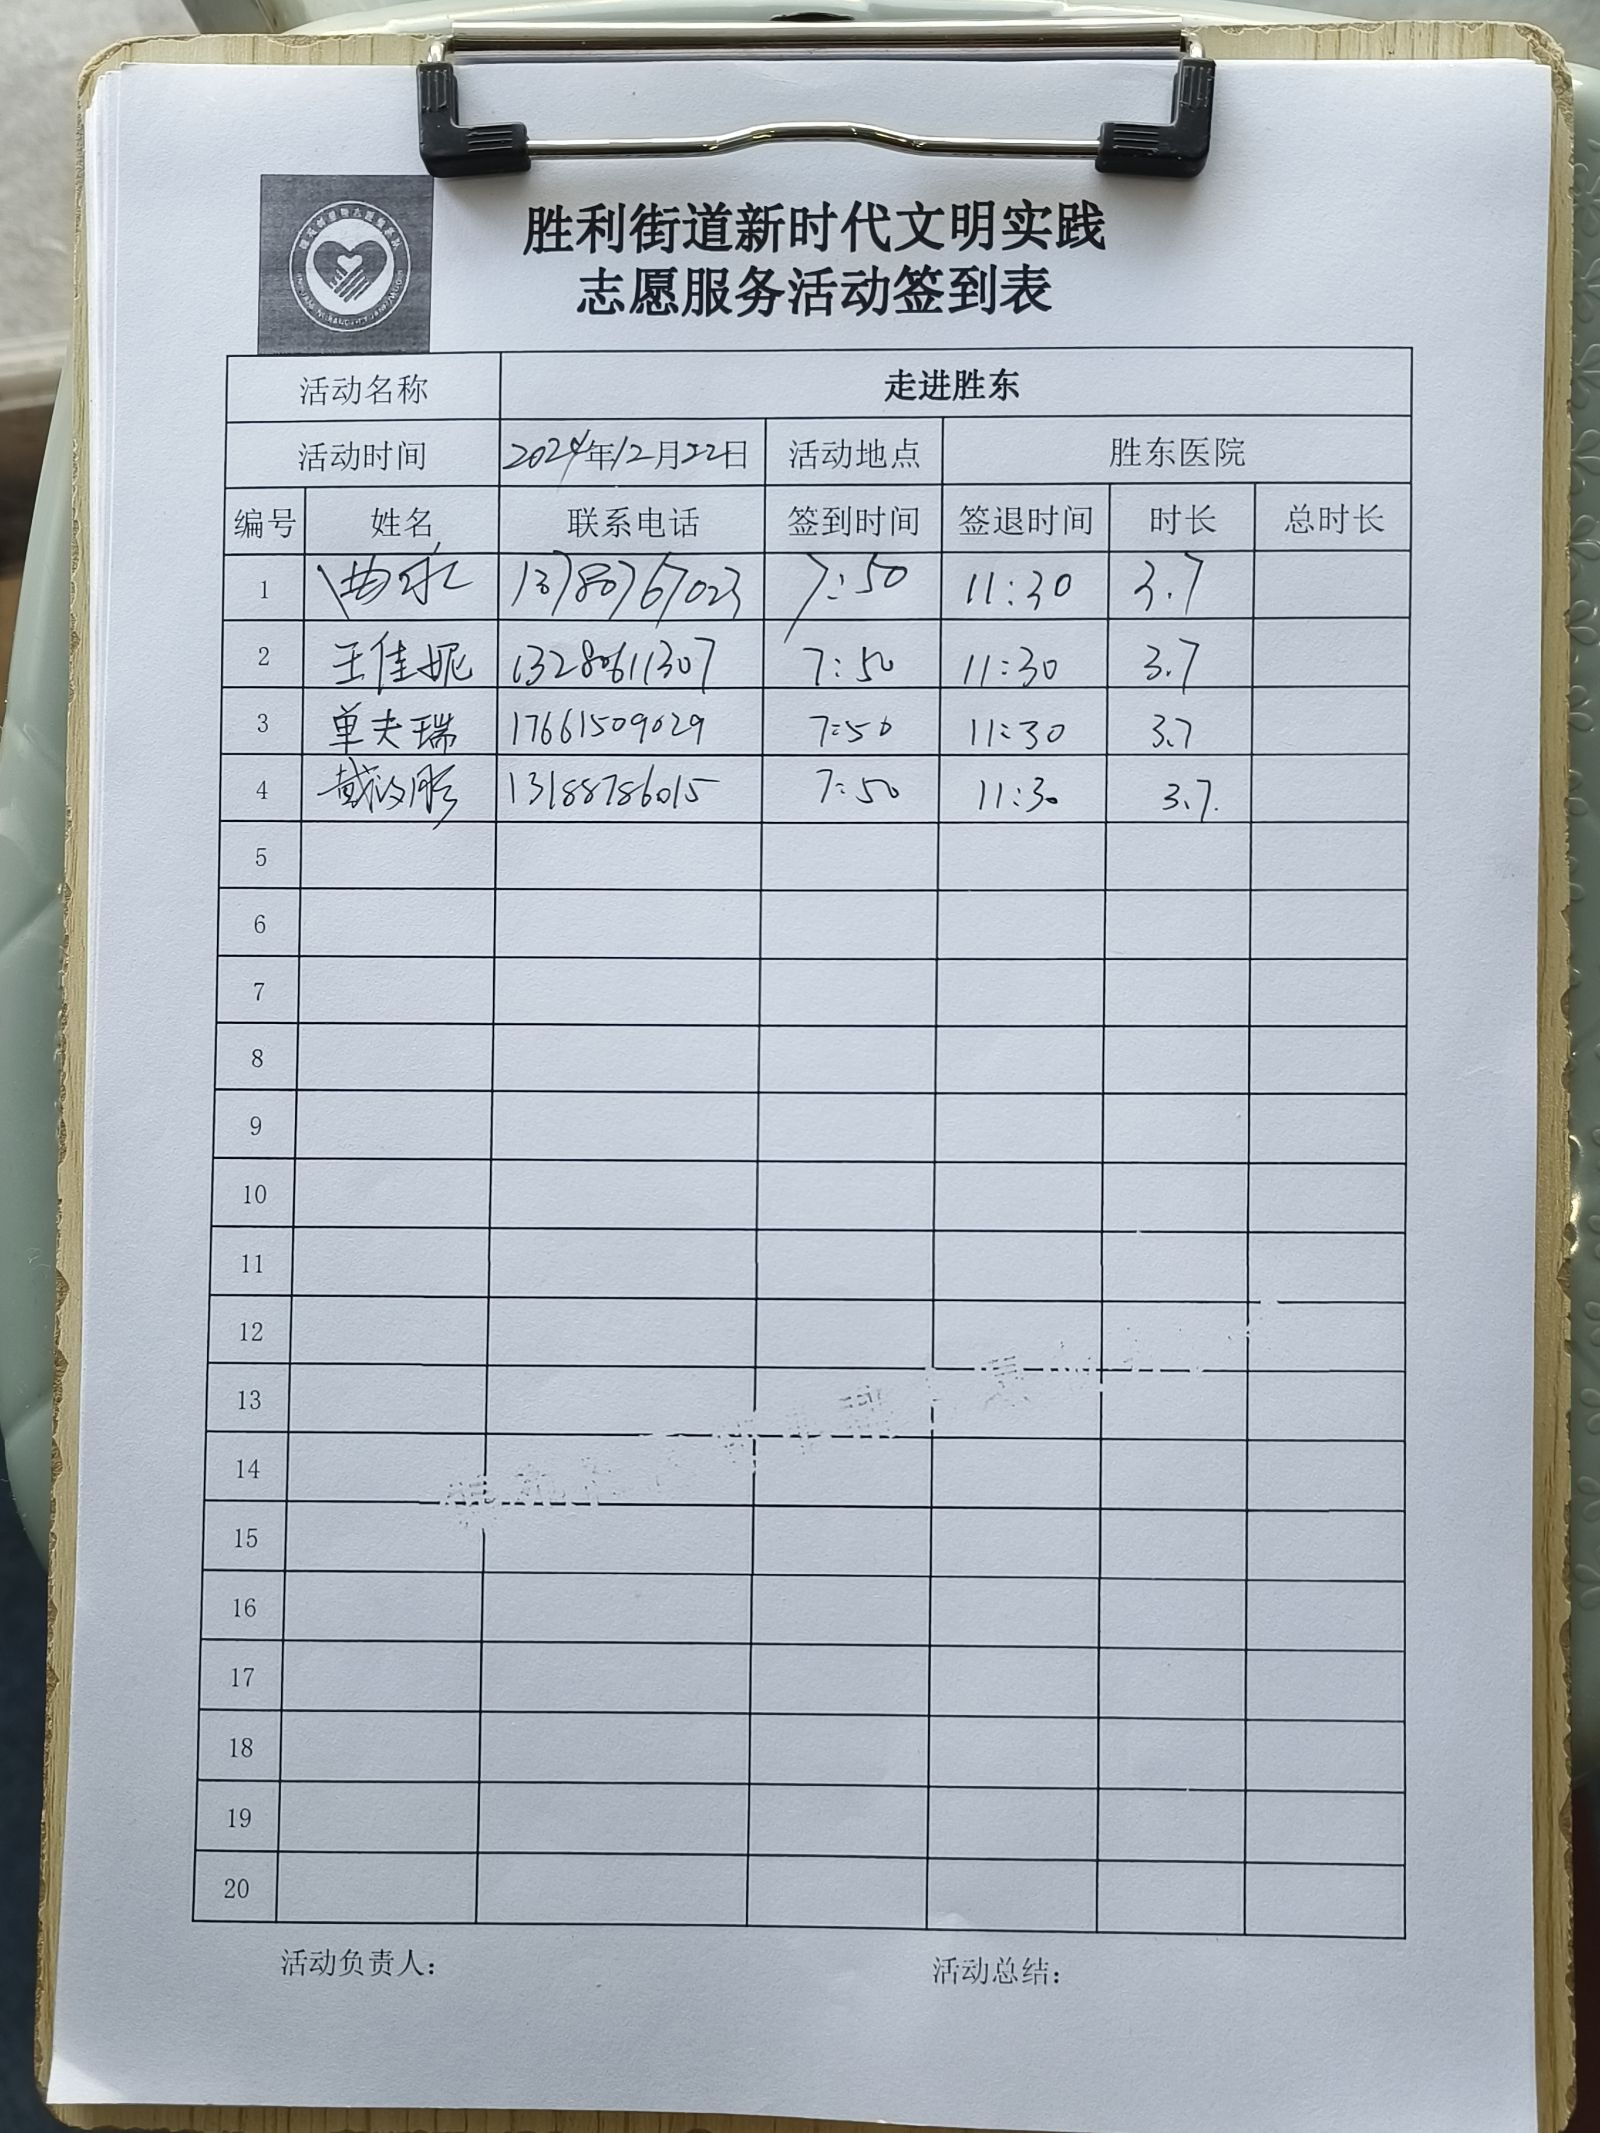 胜利街道新时代文明实践
志愿服务活动签到表
活动名称 走进胜东
活动时间 2024年12月22日 活动地点 胜东医院
编号 姓名 联系电话 签到时间 签退时间 时长 总时长
1 13780767023 7:50 11:30 3.7
2 王佳妮 13280611307 7:50 11:30 3.7
3 单夫瑞 17661509029 7:50 11:30 3.7
4 13188786015 7:50 11:30 3.7
5
6
7
8
9
10
11
12
13
14
15
16
17
18
19
20
活动负责人： 活动总结：